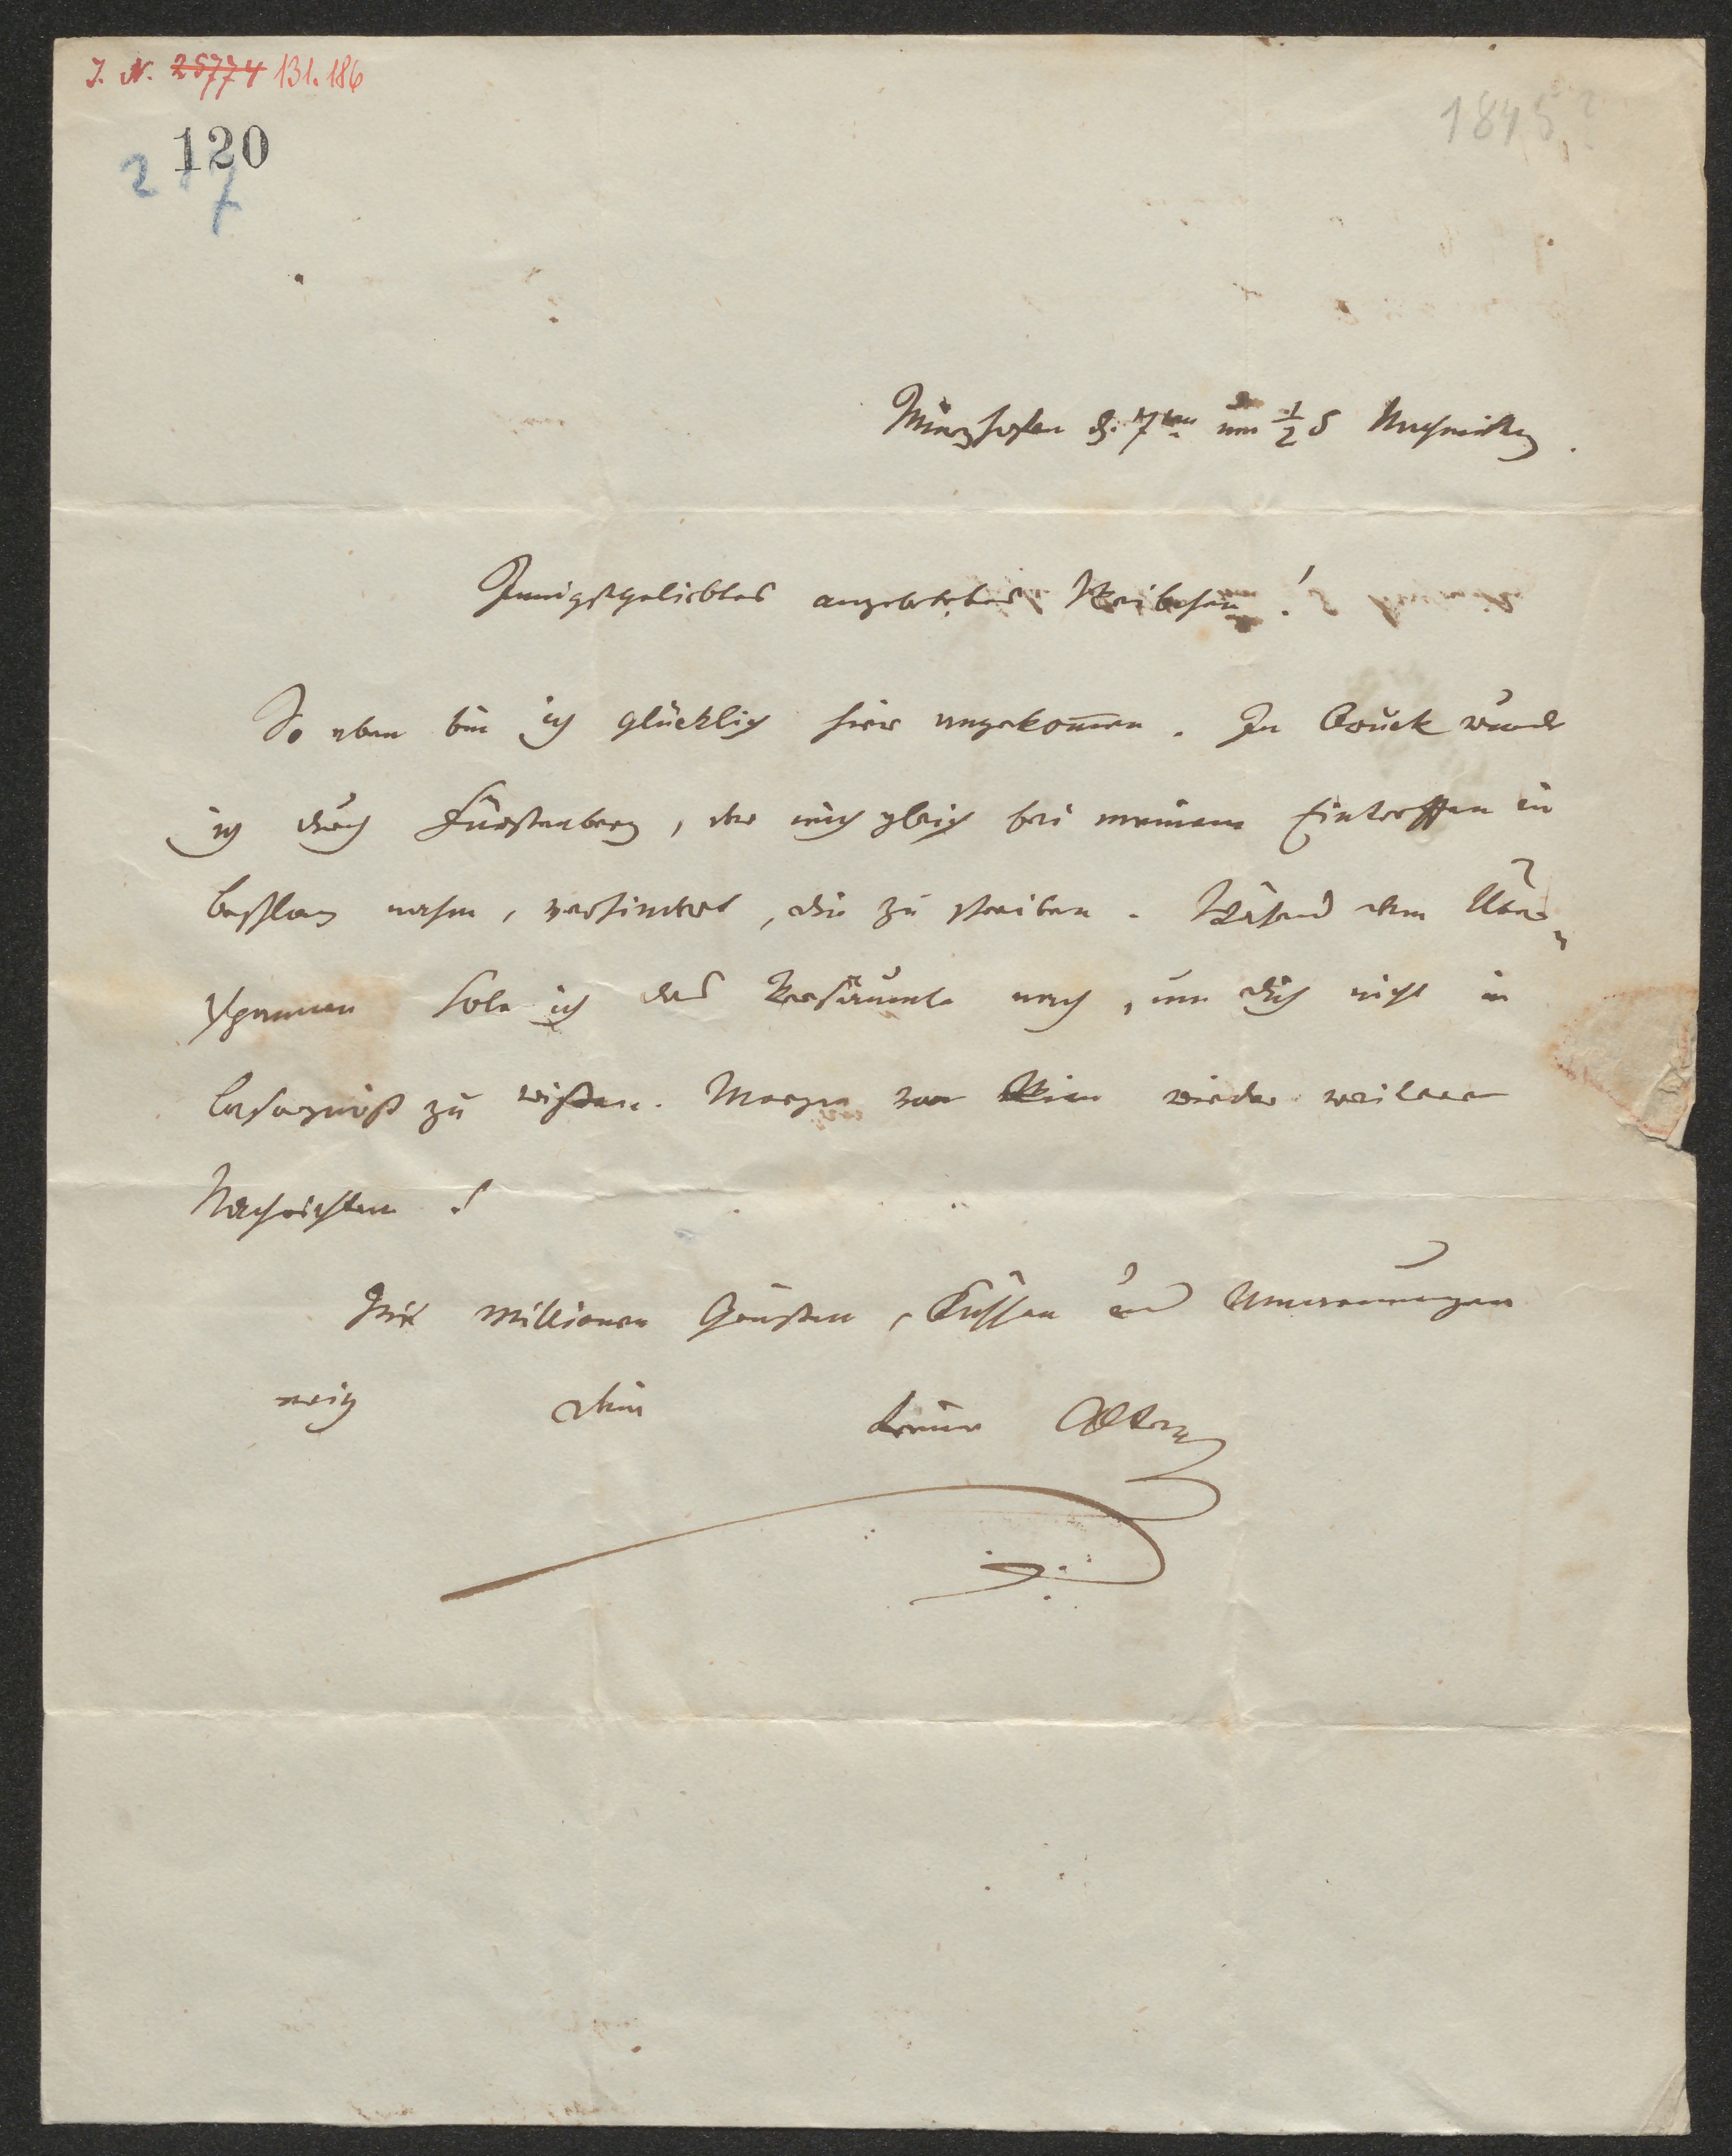 I. N. 25774 131.186
1845?
120
217
Mürzhofen d. 7ten um ½ 5 Nachmittag.
Innigstgeliebtes angebetetes Weibchen!
So eben bin ich glücklich hier angekommen. In Bruck wurde
ich durch Fürstenberg, der mich gleich bei meinem Eintreffen in
Beschlag nahm, verhindert, dir zu schreiben. Während dem Um-
spannen hole ich das Versäumte nach, um dich nicht in
Besorgniß zu wissen. Morgen von Wien wieder weitere
Nachrichten!
Mit Millionen Grüßen, Küssen und Umarmungen
ewig dein treuer